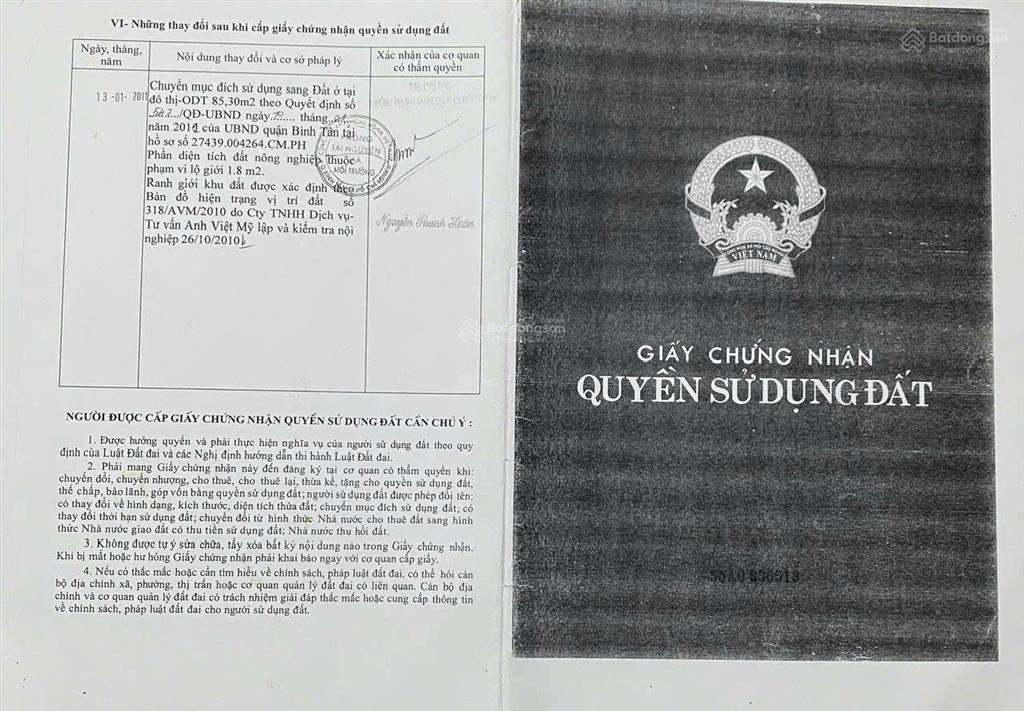 VI- Những thay đổi sau khi cấp giấy chứng nhận quyền sử dụng đất
Ngày, tháng, năm
Nội dung thay đổi và cơ sở pháp lý
Xác nhận của cơ quan có thẩm quyền
13-01-2011
Chuyển mục đích sử dụng sang Đất ở tại
đô thị-ODT 85,30m2 theo Quyết định số
/QĐ-UBND ngày tháng
năm 2011 của UBND quận Bình Tân tại
hồ sơ số 27439.004264.CM.PH
Phần diện tích đất nông nghiệp thuộc
phạm vi lộ giới 1.8 m2.
Ranh giới khu đất được xác định theo
Bản đồ hiện trạng vị trí đất số
318/AVM/2010 do Cty TNHH Dịch vụ-
Tư vấn Anh Việt Mỹ lập và kiểm tra nội
nghiệp 26/10/2010
PHÒNG
TÀI NGUYÊN
VÀ
MÔI TRƯỜNG
Nguyễn Thanh Xuân
NGƯỜI ĐƯỢC CẤP GIẤY CHỨNG NHẬN QUYỀN SỬ DỤNG ĐẤT CẦN CHÚ Ý :
1. Được hưởng quyền và phải thực hiện nghĩa vụ của người sử dụng đất theo quy
định của Luật Đất đai và các Nghị định hướng dẫn thi hành Luật Đất đai.
2. Phải mang Giấy chứng nhận này đến đăng ký tại cơ quan có thẩm quyền khi:
chuyển đổi, chuyển nhượng, cho thuê, cho thuê lại, thừa kế, tặng cho quyền sử dụng đất,
thế chấp, bảo lãnh, góp vốn bằng quyền sử dụng đất; người sử dụng đất được phép đổi tên;
có thay đổi về hình dạng, kích thước, diện tích thửa đất; chuyển mục đích sử dụng đất; có
thay đổi thời hạn sử dụng đất; chuyển đổi từ hình thức Nhà nước cho thuê đất sang hình
thức Nhà nước giao đất có thu tiền sử dụng đất; Nhà nước thu hồi đất.
3. Không được tự ý sửa chữa, tẩy xóa bất kỳ nội dung nào trong Giấy chứng nhận.
Khi bị mất hoặc hư hỏng Giấy chứng nhận phải khai báo ngay với cơ quan cấp giấy.
4. Nếu có thắc mắc hoặc cần tìm hiểu về chính sách, pháp luật đất đai, có thể hỏi cán
bộ địa chính xã, phường, thị trấn hoặc cơ quan quản lý đất đai có liên quan. Cán bộ địa
chính và cơ quan quản lý đất đai có trách nhiệm giải đáp thắc mắc hoặc cung cấp thông tin
về chính sách, pháp luật đất đai cho người sử dụng đất.
Batdongsan
by PropertyGuru
Batdongsan
VIỆT NAM
GIẤY CHỨNG NHẬN
QUYỀN SỬ DỤNG ĐẤT